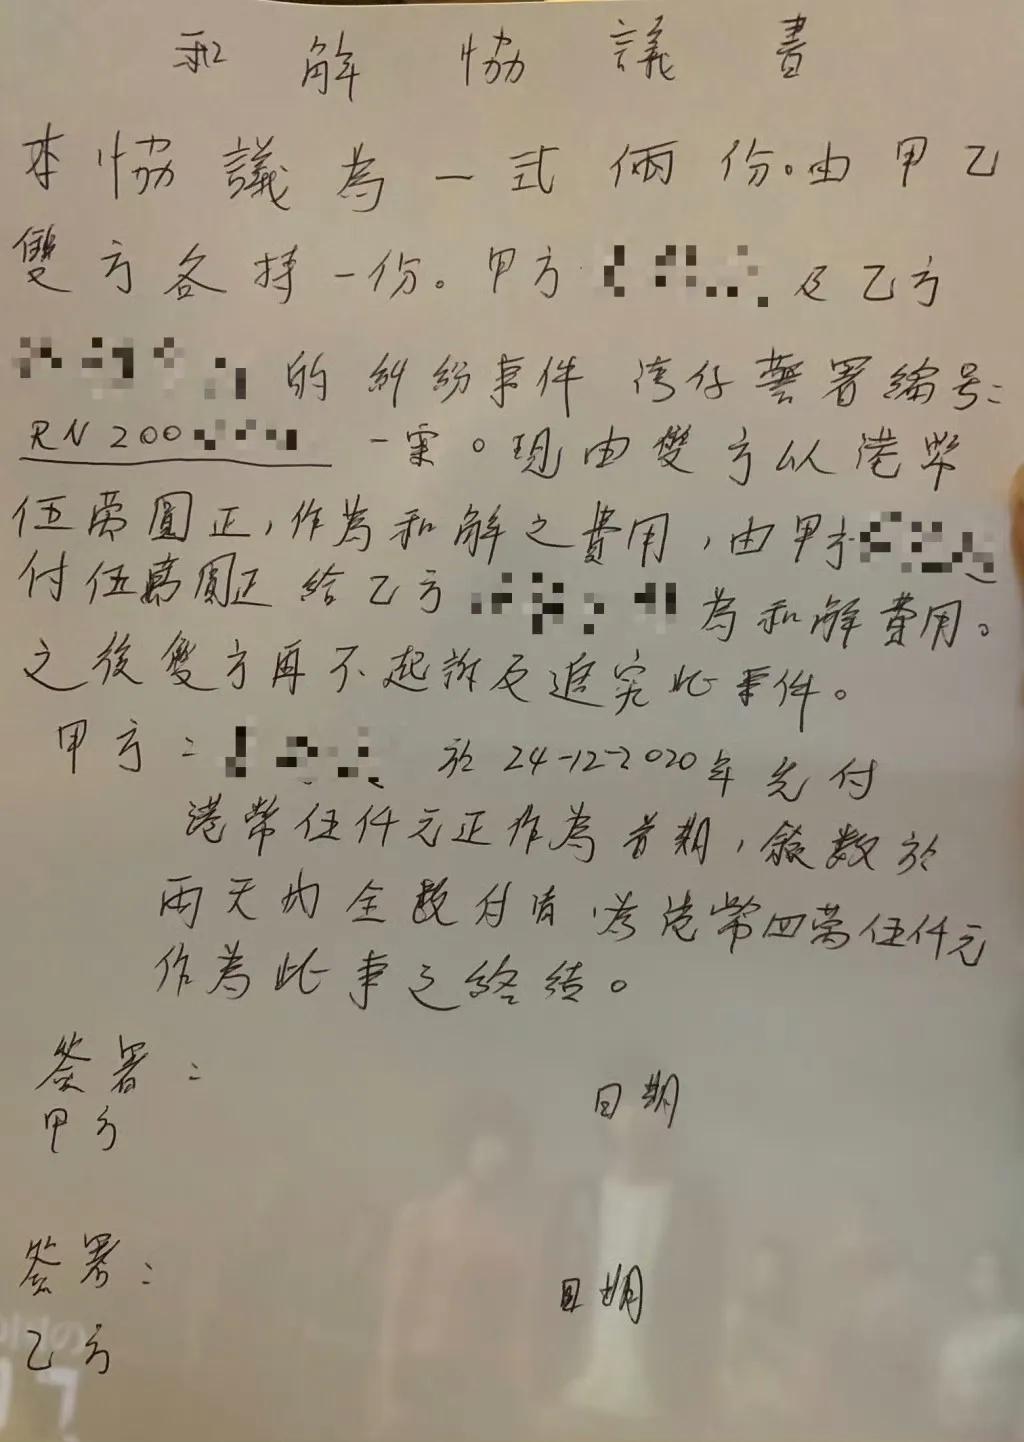 和解協議書
本協議為一式倆份。由甲乙
雙方各持一份。甲方 及乙方
的糾紛事件 湾仔警署編号：
RN 200 一案。現由雙方以港幣
伍萬圓正，作為和解之費用，由甲方
付伍萬圓正給乙方 為和解費用。
之後雙方再不起訴反追究此事件。
甲方： 於24-12-2020年先付
港幣伍仟元正作為首期，餘數於
兩天內全數付清，為港幣四萬伍仟元
作為此事之終结。
签署：
日期
甲方
签署：
日期
乙方